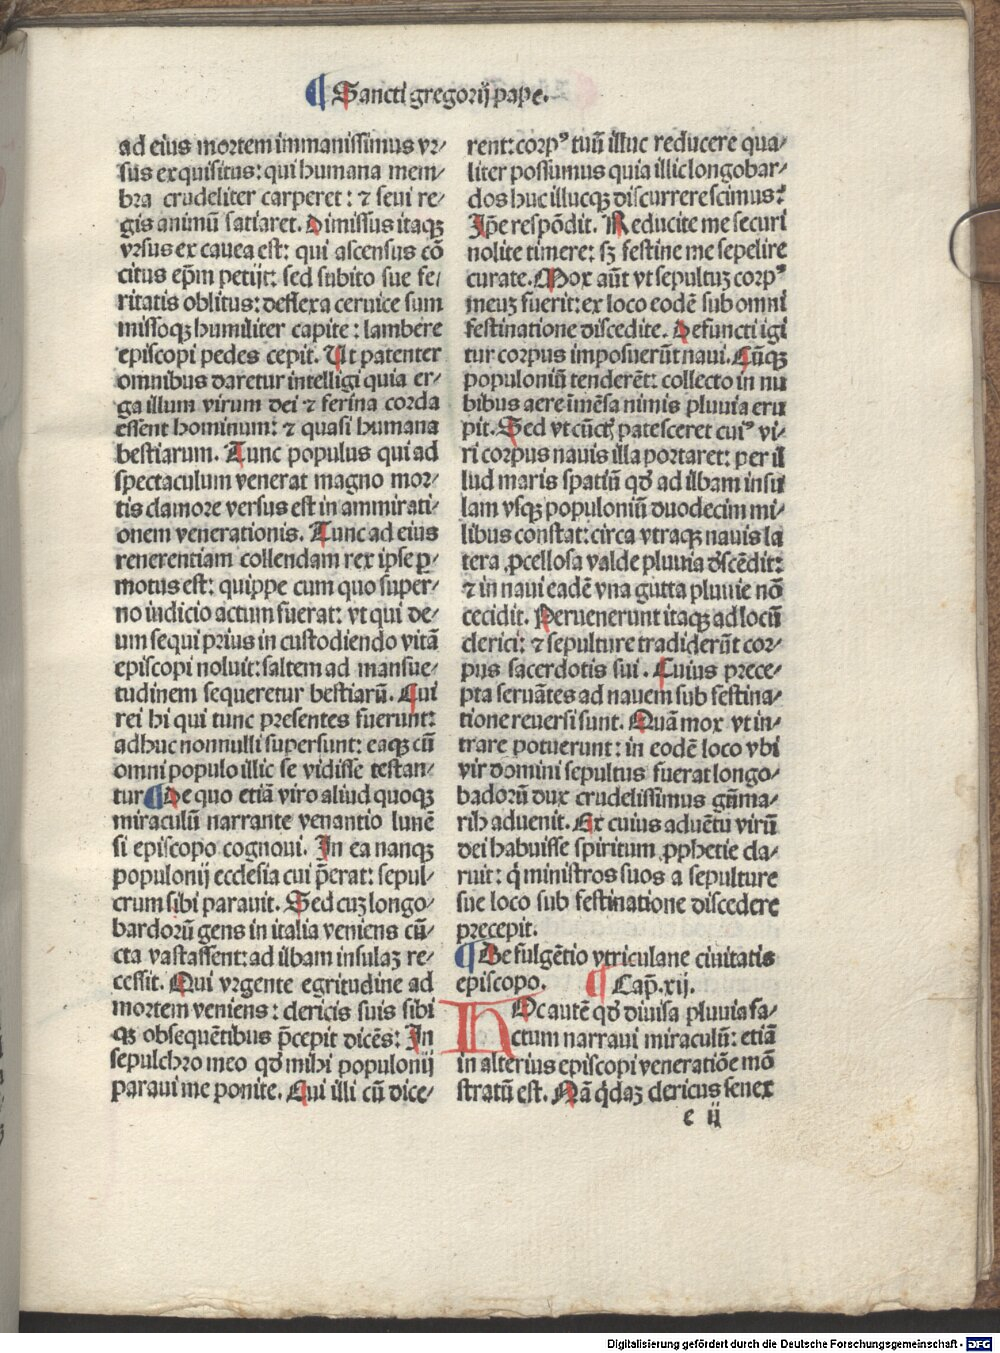 ¶ Sancti gregorij pape.
ad eius mortem immanissimus vr⸗
sus exquisitus: qui humana mem⸗
bra crudeliter carperet: ⁊ seui re⸗
gis animū satiaret. Dimissus itaqꝫ
vrsus ex cauea est: qui ascensus cō
citus ep̄m petijt: sed subito sue fe⸗
ritatis oblitus: deflexa ceruice sum
missoqꝫ humiliter capite: lambere
episcopi pedes cepit. Ut patenter
omnibus daretur intelligi quia er⸗
ga illum virum dei ⁊ ferina corda
essent hominum: ⁊ quasi humana
bestiarum. Tunc populus qui ad
spectaculum venerat magno mor⸗
tis clamore versus est in ammirati⸗
onem venerationis. Tunc ad eius
renerentiam collendam rex ipse ꝑ⸗
motus est: quippe cum quo super⸗
no iudicio actum fuerat: vt qui de⸗
um sequi prius in custodiendo vitā
episcopi noluit: saltem ad mansue⸗
tudinem sequeretur bestiarū. Cui
rei hi qui tunc presentes fuerunt:
adhuc nonnulli supersunt: eaqꝫ cū
omni populo illic se vidisse testan⸗
tur ¶ De quo etiā viro aliud quoqꝫ
miraculū narrante venantio lunē
si episcopo cognoui. In ea nanqꝫ
populonij ecclesia cui p̄erat: sepul⸗
crum sibi parauit. Sed cuꝫ longo⸗
bardorū gens in italia veniens cū⸗
cta vastassent: ad ilbam insulaꝫ re⸗
cessit. Qui vrgente egritudine ad
mortem veniens: clericis suis sibi
qꝫ obsequētibus p̄cepit dicēs: In
sepulchro meo qd̄ mihi populonij
paraui me ponite. Cui illi cū dice⸗
rent: corpꝰ tuū illuc reducere qua⸗
liter possumus quia illic longobar⸗
dos huc illucqꝫ discurrere scimus?
Ip̄e respōdit. Reducite me securi
nolite timere: sꝫ festine me sepelire
curate. Mox aūt vt sepultuꝫ corpꝰ
meuꝫ fuerit: ex loco eodē sub omni
festinatione discedite. Defuncti igi
tur corpus imposuerūt naui. Cūqꝫ
populoniū tenderēt: collecto in nu
bibus aere īmēsa nimis pluuia eru
pit. Sed vt cūctꝭ patesceret cuiꝰ vi⸗
ri corpus nauis illa portaret: per il
lud maris spatiū qd̄ ad ilbam insu
lam vsqꝫ populoniū duodecim mi⸗
libus constat: circa vtraqꝫ nauis la
tera ꝓcellosa valde pluuia d̄scēdit:
⁊ in naui eadē vna gutta pluuie nō
cecidit. Peruenerunt itaqꝫ ad locū
clerici: ⁊ sepulture tradiderūt cor⸗
pus sacerdotis sui. Cuius prece⸗
pta seruātes ad nauem sub festina⸗
tione reuersi sunt. Quā mox vt in⸗
trare potuerunt: in eodē loco vbi
vir domini sepultus fuerat longo⸗
badorū dux crudelissimus gūma⸗
rih aduenit. Ex cuius aduētu virū
dei habuisse spiritum ꝓphetie cla⸗
ruit: q̇ ministros suos a sepulture
sue loco sub festinatione discedere
precepit.
¶ De fulgētio vtriculane ciuitatis
episcopo. ¶ Cap̄. xij.
HOc autē qd̄ diuisa pluuia fa⸗
ctum narraui miraculū: etiā
in alterius episcopi veneratiōe mō
stratū est. Nā q̇daꝫ clericus senex
e ij
Digitalisierung gefördert durch die Deutsche Forschungsgemeinschaft - DFG